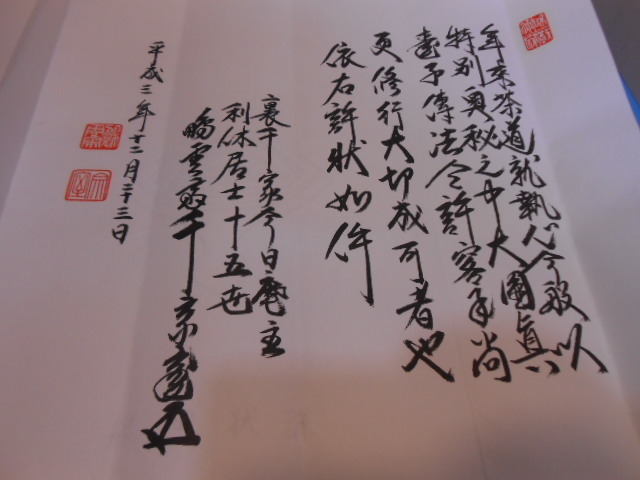 年来茶道就執心今般以
特別奥秘之中大圓眞
臺子傳法令許容畢尚
更修行大切成可者也
依右許状如件
裏千家今日庵主
利休居士十五世
鵬雲斎千宗室
平成三年十二月二十三日